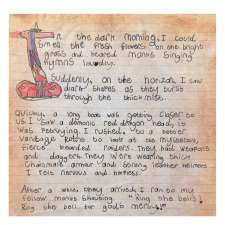 In the dark morning, I could
smell the fresh flowers on the bright
grass and heared monks singing
hymns loundly.
Suddenly, on the horizon, I saw
dark shapes as they burst
through the thick mist.
Quickly, a long boat was getting closer to
us. I saw a demonic red dragon head, it
was terrifying. I rushed, to a better
vantage point to look at the mysterious,
fierce bearded raiders. They had weapons
and daggers. They were wearing thick
Chainmail armour and strong leather helmets
I felt nervous and
After a while, they arrived, I ran to my
fellow monks shouting "Ring the bell!
Ring the bell for god's mercy!"